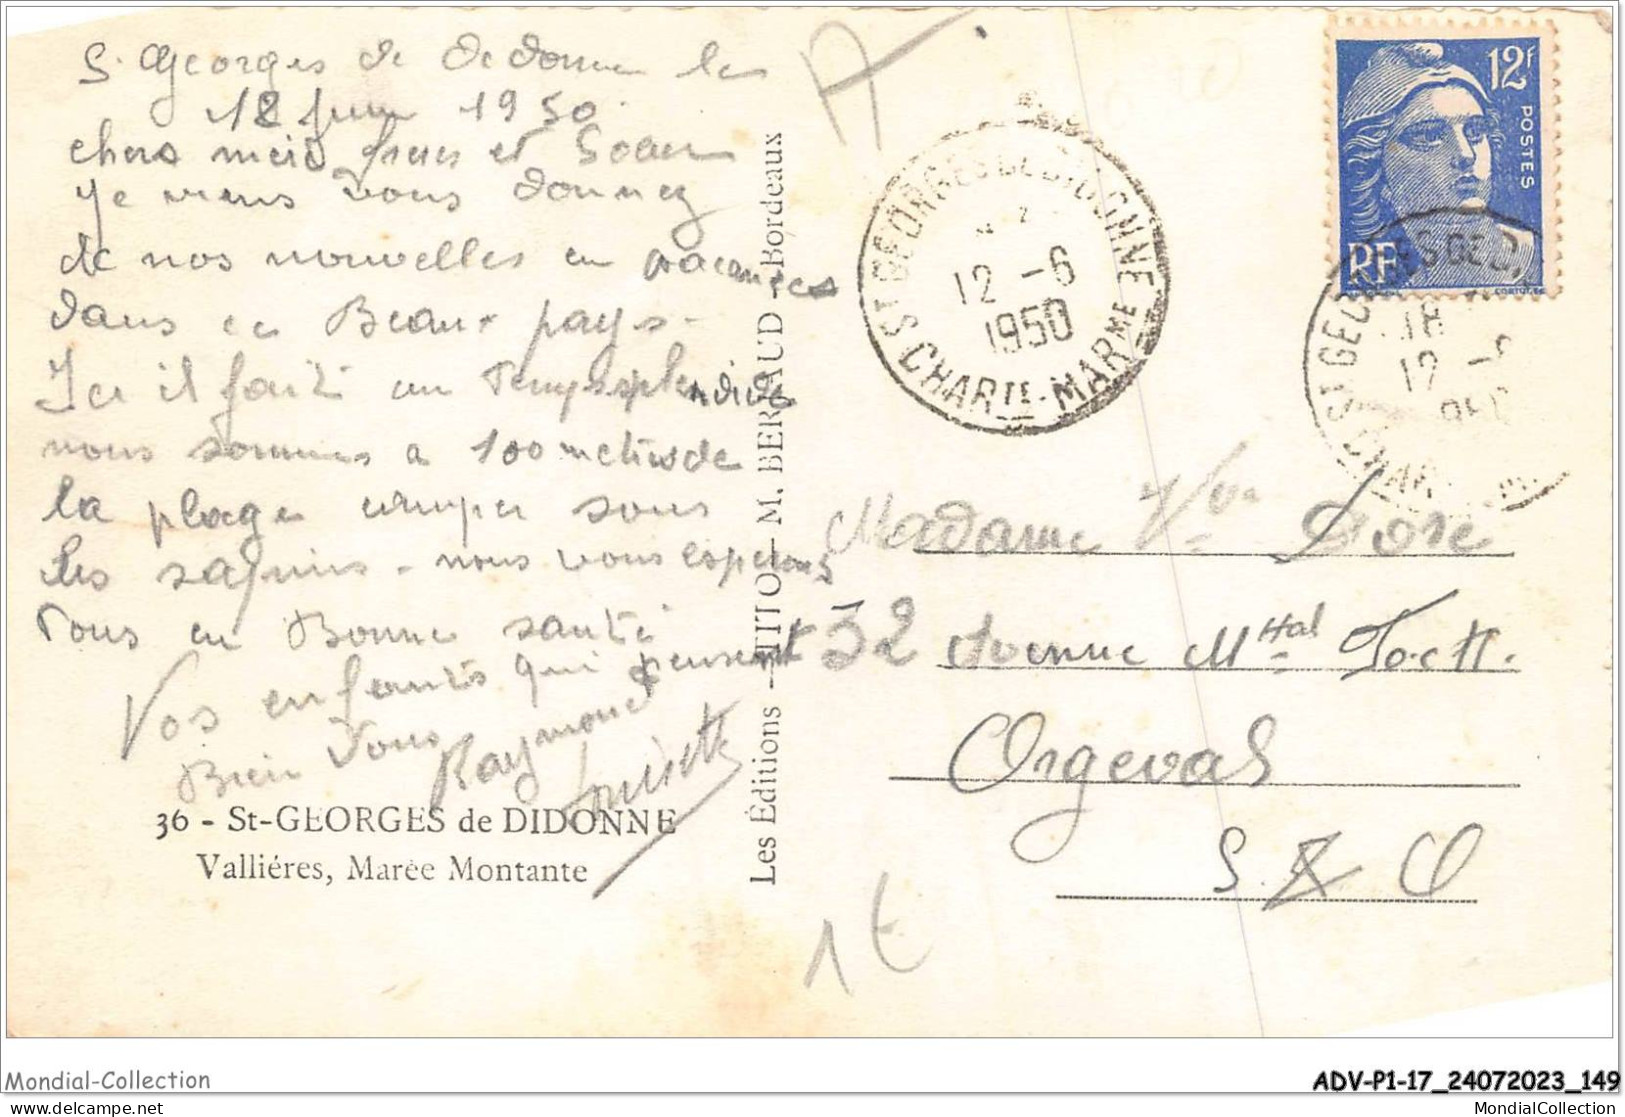 S. Georges de Dedonne les
12 juin 1950
chers frères et Soeur
Je viens vous donnez
de nos nouvelles en vacances
dans ce Beaux pays-
Ici il fait un Temps splendide
nous sommes a 100 metres de
la plage camper sous
les sapins - nous vous esperons
Tous en Bonne santé
Vos enfants qui pensent
Bien Vous
Raymond
Louisette
36 - St-GEORGES de DIDONNE
Vallières, Marée Montante
Les Éditions M. BERJAUD - Bordeaux
12F
POSTES
RF
ST GEORGES DE DIDONNE
12 -6
1950
CHARTE-MARME
18
12 -6
Madame Vve Dore
32 Avenue Mhal Foch.
Orgeval
S. & O
1€
Mondial-Collection
ADV-P1-17_24072023_149
delcampe.net
MondialCollection